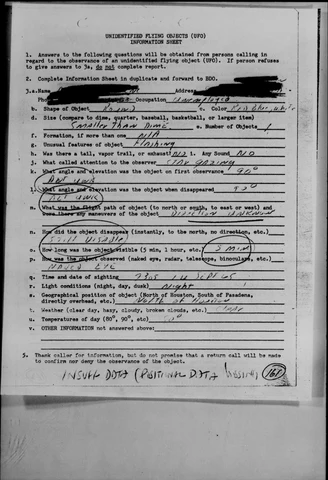 UNIDENTIFIED FLYING OBJECTS (UFO)
INFORMATION SHEET
1. Answers to the following questions will be obtained from persons calling in
regard to the observance of an unidentified flying object (UFO). If person refuses
to give answers to 3a, do not complete report.
2. Complete Information Sheet in duplicate and forward to BDO.
3.a. Name Address
Pho Occupation Unemployed
b. Shape of Object Round c. Color Red, blue, white
d. Size (compare to dime, quarter, baseball, basketball, or larger item)
Smaller than dime e. Number of Objects 1
f. Formation, if more than one N/A
g. Unusual features of object Flashing
h. Was there a tail, vapor trail, or exhaust NO i. Any Sound NO
j. What called attention to the observer Star gazing
k. What angle and elevation was the object on first observance 90°
Alt Unk
l. What angle and elevation was the object when disappeared 90°
Alt Unk
m. What was the flight path of object (to north or south, to east or west) and
were there any maneuvers of the object Direction Unknown
n. How did the object disappear (instantly, to the north, no direction, etc.)
Still Visable
o. How long was the object visible (5 min, 1 hour, etc.) 5 min
p. How was the object observed (naked eye, radar, telescope, binoculars, etc.)
Naked Eye
q. Time and date of sighting 14 Sept 65
r. Light conditions (night, day, dusk) Night
s. Geographical position of object (North of Houston, South of Pasadena,
directly overhead, etc.) North of Houston
t. Weather (clear day, hazy, cloudy, broken clouds, etc.) Clear
u. Temperatures of day (80°, 90°, etc.)
v. OTHER INFORMATION not answered above:
5. Thank caller for information, but do not promise that a return call will be made
to confirm nor deny the observance of the object.
INSUFF DATA (POSITIONAL DATA MISSING) 161